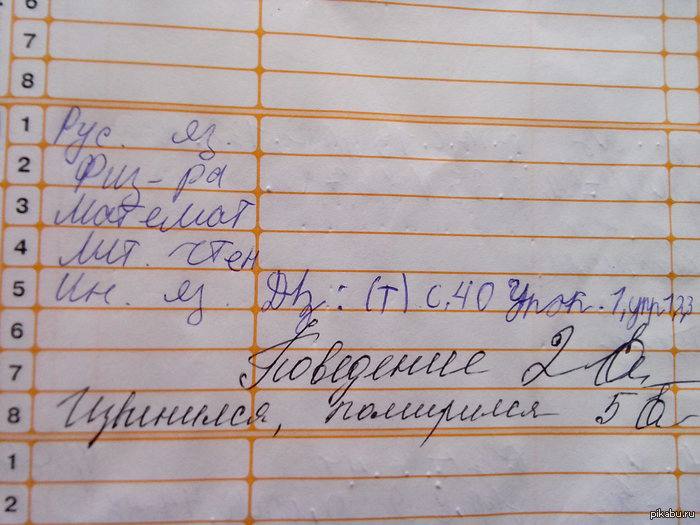 6
7
8
1 Рус. яз.
2 Физ-ра
3 Математ
4 Лит. чтен
5 Ин. яз. Дз: (т) с.40 Урок.1, упр 1,2,3
6
7 Поведение 2
8 Извинился, помирился 5
1
2
pikabu.ru